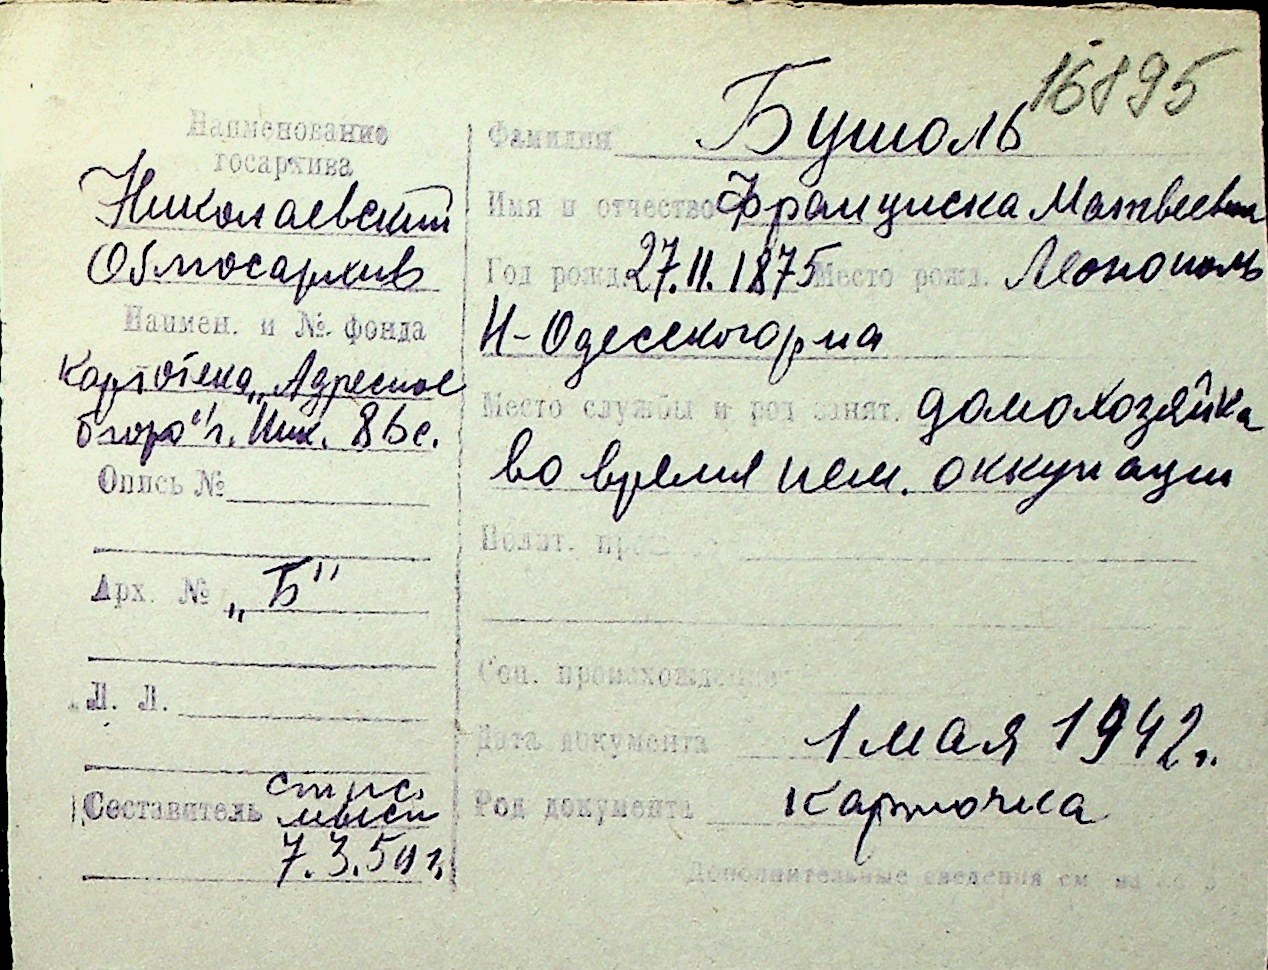 16895
Наименование
госархива
Николаевский
Облгосархив
Наимен. и №. фонда
Картотека „Адресное
бюро" г. Ник. 86 с.
Опись №
Арх. № „Б"
Л. Л.
Составитель
7.3.50 г.
Фамилия Бушоль
Имя и отчество Франциска Матвеевна
Год рожд. 27.11.1875 Место рожд.
Н-Одесского р-на
Место службы и род занят. домохозяйка
во время нем. оккупации
Полит. прош
Соц. происхождение
Дата документа 1 мая 1942 г.
Род документа карточка
Дополнительные сведения см на об